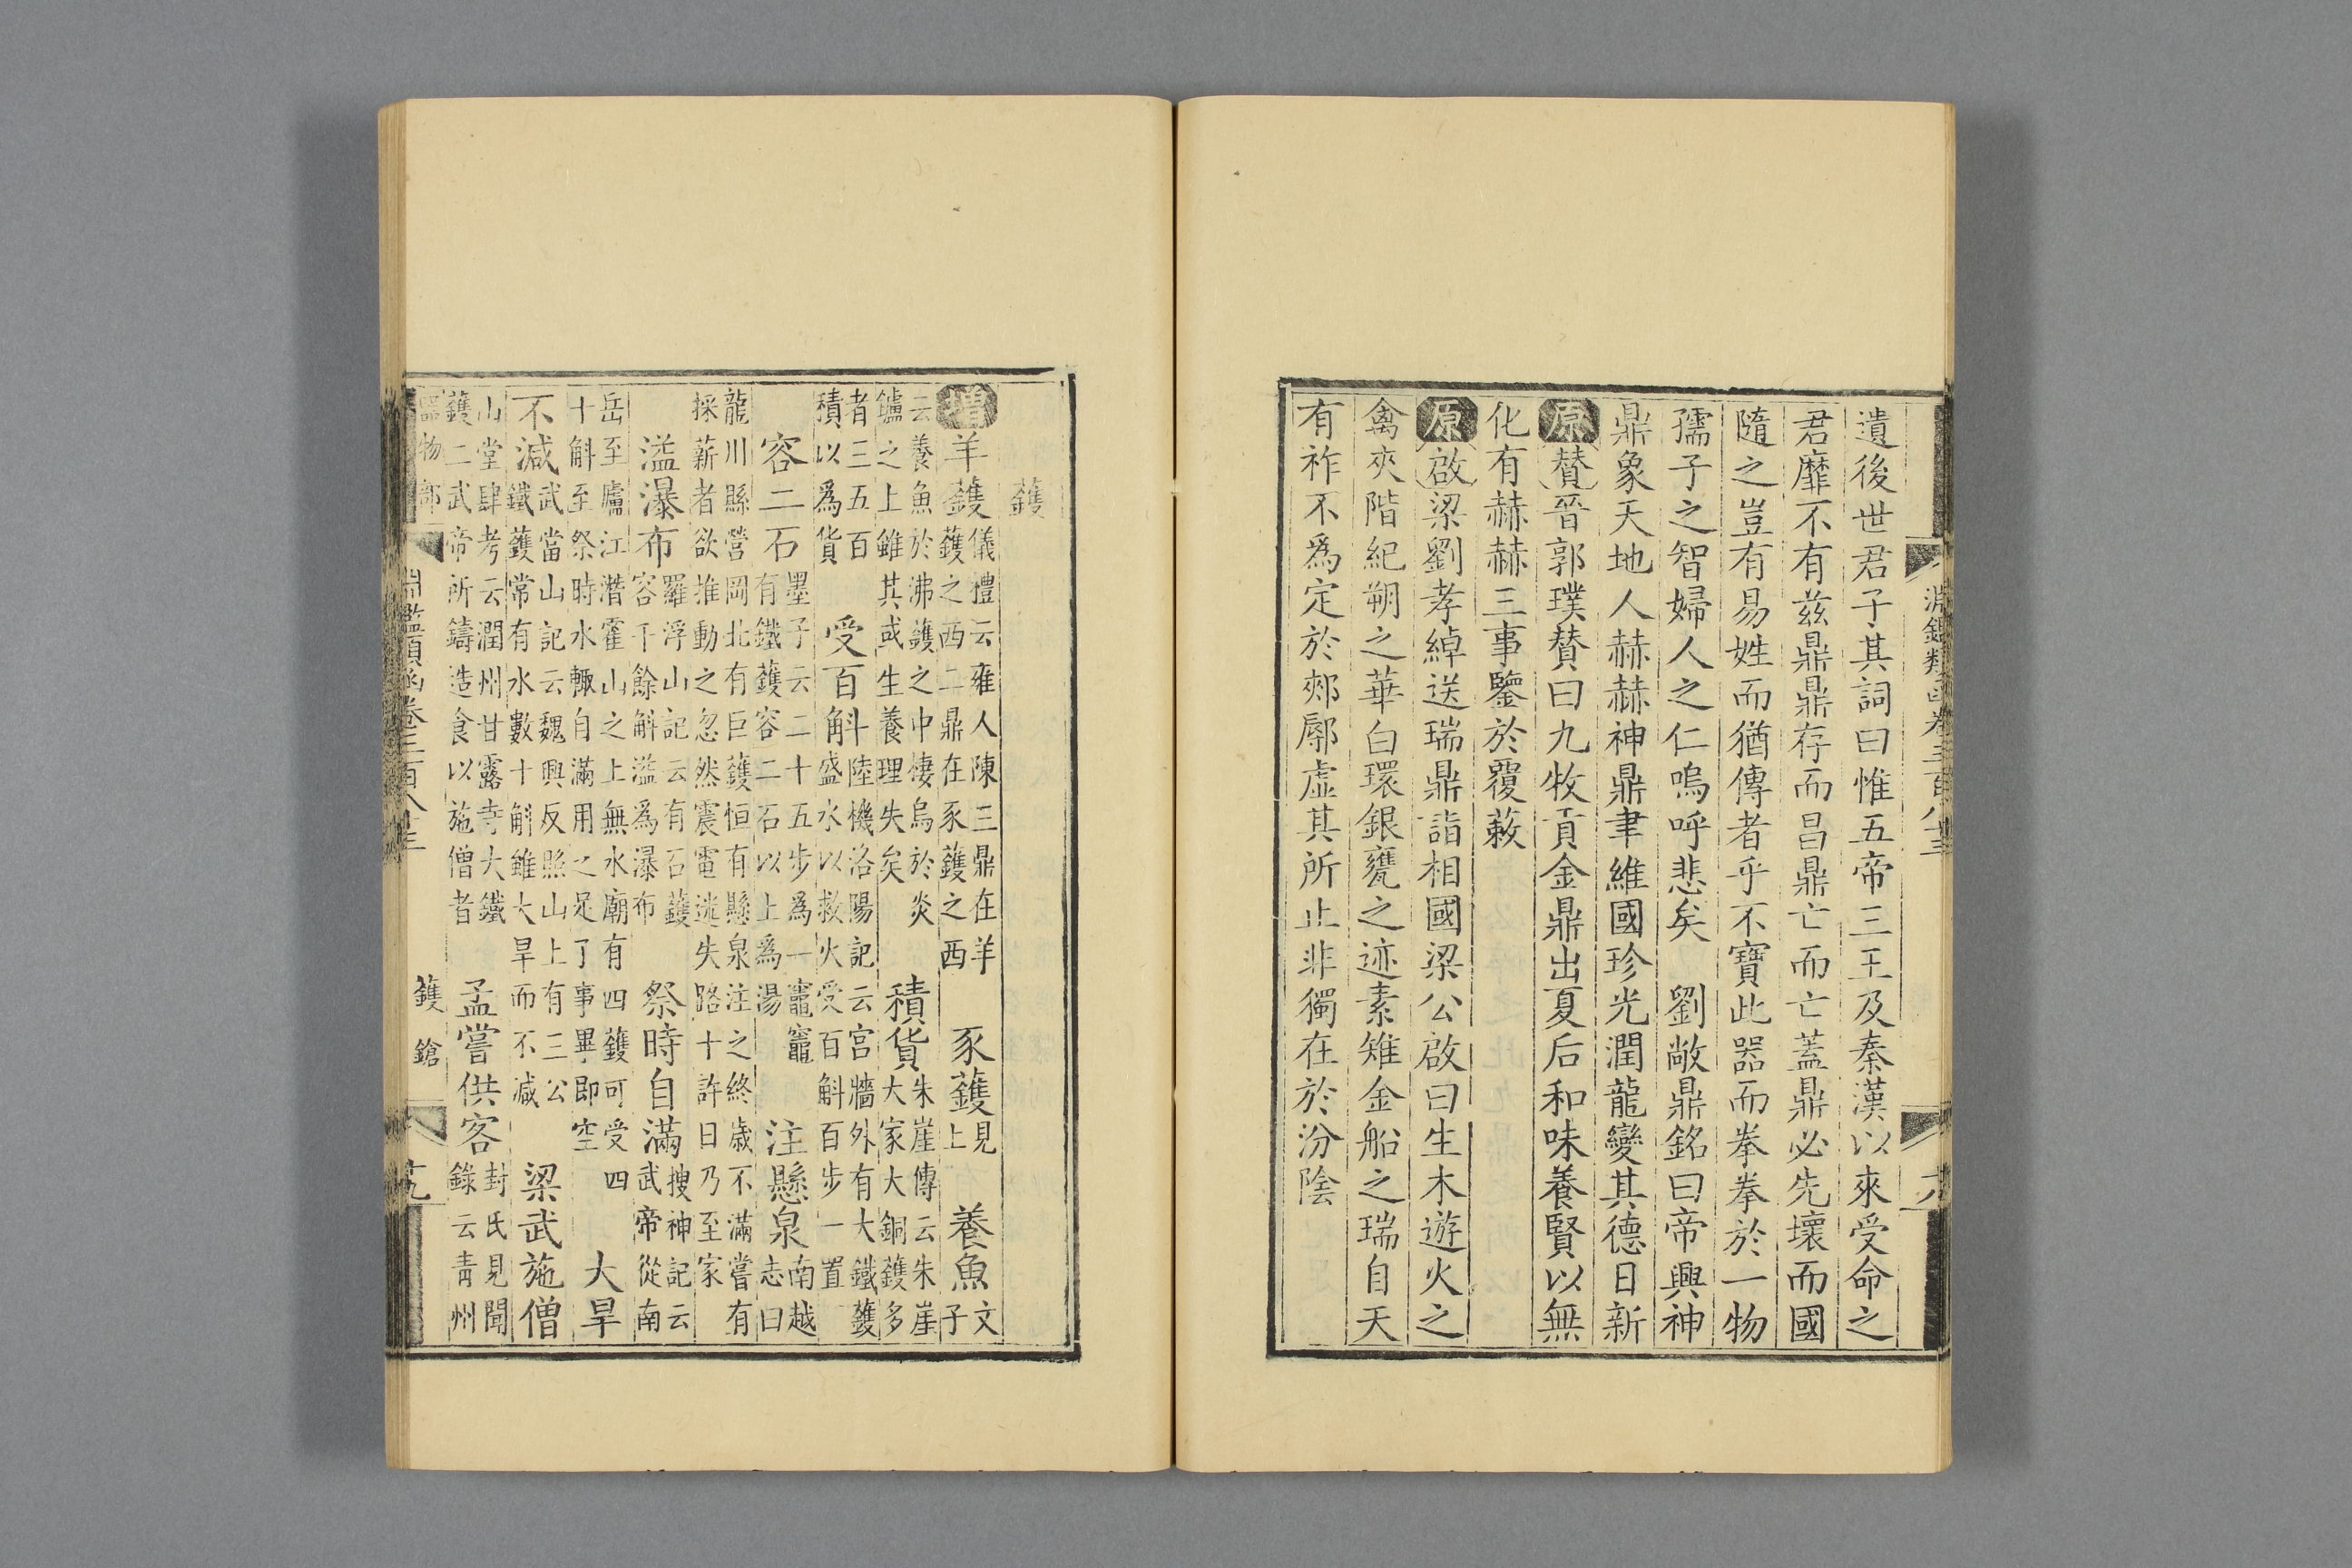 淵鑑類函卷三百八十三
遺後世君子其詞曰惟五帝三王及秦漢以來受命之
君靡不有茲鼎鼎存而昌鼎亡而亡蓋鼎必先壞而國
隨之豈有易姓而猶傳者乎不寶此器而拳拳於一物
孺子之智婦人之仁嗚呼悲矣　劉敞鼎銘曰帝興神
鼎象天地人赫赫神鼎聿維國珍光潤龍變其德日新
原贊晉郭璞贊曰九牧貢金鼎出夏后和味養賢以無
化有赫赫三事鑒於覆蔌
原啟梁劉孝綽送瑞鼎詣相國梁公啟曰生木遊火之
禽夾階紀朔之華白環銀甕之迹素雉金船之瑞自天
有祚不爲定於郟鄏虛其所止非獨在於汾陰
鑊
增羊鑊儀禮云雍人陳三鼎在羊鑊之西二鼎在豕鑊之西　豕鑊見上　養魚文子
云養魚於沸鑊之中棲鳥於炎鑪之上雖其或生養理失矣　積貨朱崖傳云朱崖大家大銅鑊多
者三五百積以爲貨　受百斛陸機洛陽記云宮牆外有大鐵鑊盛水以救火受百斛百步一置
容二石墨子云二十五步爲一竈竈有鐵鑊容二石以上爲湯　注懸泉南越志曰
龍川縣營岡北有巨鑊恒有懸泉注之終歲不滿嘗有採薪者欲推動之忽然震電迷失路十許日乃至家
溢瀑布羅浮山記云有石鑊容千餘斛溢爲瀑布　祭時自滿搜神記云武帝從南
岳至廬江潛霍山之上無水廟有四鑊可受四十斛至祭時水輒自滿用之足了事畢即空　大旱
不減武當山記云魏興反照山上有三公鐵鑊常有水數十斛雖大旱而不減　梁武施僧
山堂肆考云潤州甘露寺大鐵鑊二武帝所鑄造食以施僧者　孟嘗供客封氏見聞錄云青州
器物部　淵鑑類函卷三百八十三　鑊　鎗　十九